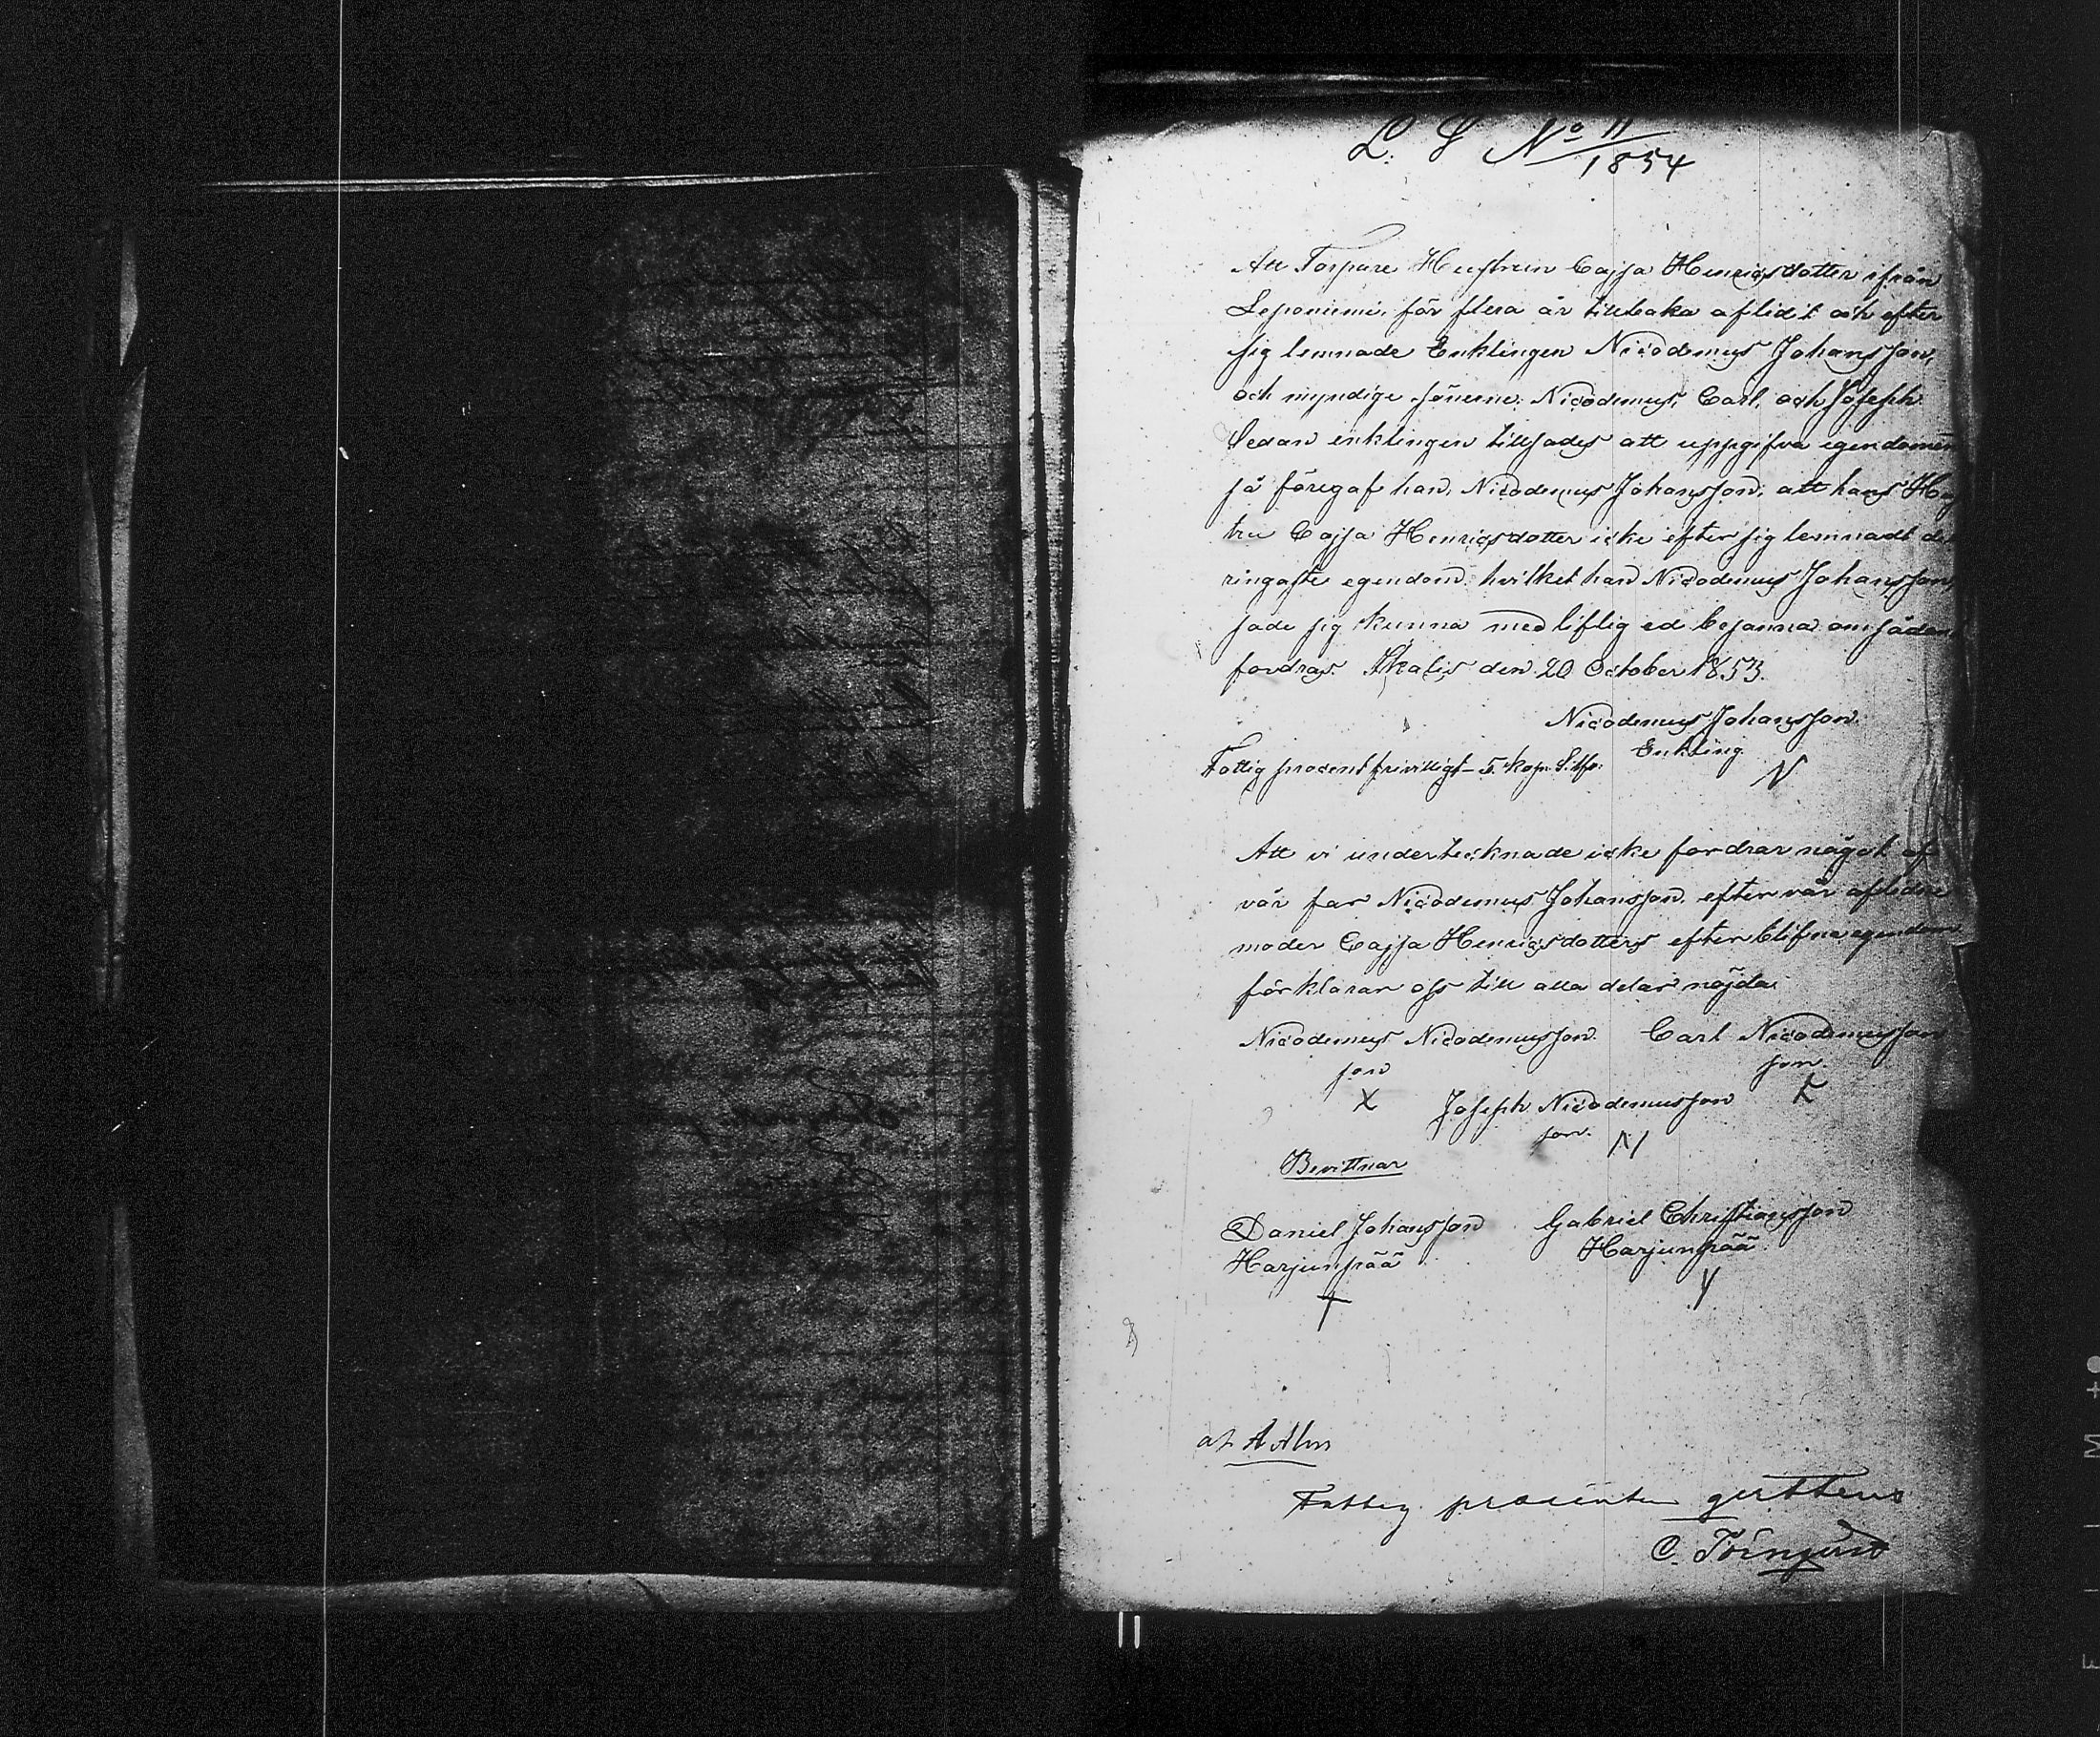 L. S. No 11
1854
Att Torpare Hustrun Cajsa Henricsdotter ifrån
Leponiemi, för flera år tillbaka aflidit och efter
sig lemnade Enklingen Nicodemus Johansson,
och myndige sönerne: Nicodemus, Carl, och Joseph
Sedan enklingen tillsades att uppgifva egendomen
så föregaf han, Nicodemus Johansson, att hans Hus
tru Cajsa Henricsdotter icke efter sig lemnadt det
ringaste egendom. hvilket han Nicodemus Johansson,
sade sig kunna med liflig ed besanna om sådan
fordras. Ikalis den 20 October 1853.
Nicodemus Johansson
Enkling
N
Fattig procent frivilligt - 5. kop. Silfr.
Att vi undertecknade icke fordrar något af
vår far Nicodemus Johansson, efter vår aflidne
moder Cajsa Henricsdotters efterblifne egendom
förklarar oss till alla delar nöjda.
Nicodemus Nicodemusson. Carl Nicodemusson
son son.
X Joseph Nicodemusson
son.
Bevittnar
Daniel Johansson Gabriel Christiansson
Harjunpää Harjunpää
Fattig procenten qvitteras
C. Törnqvist